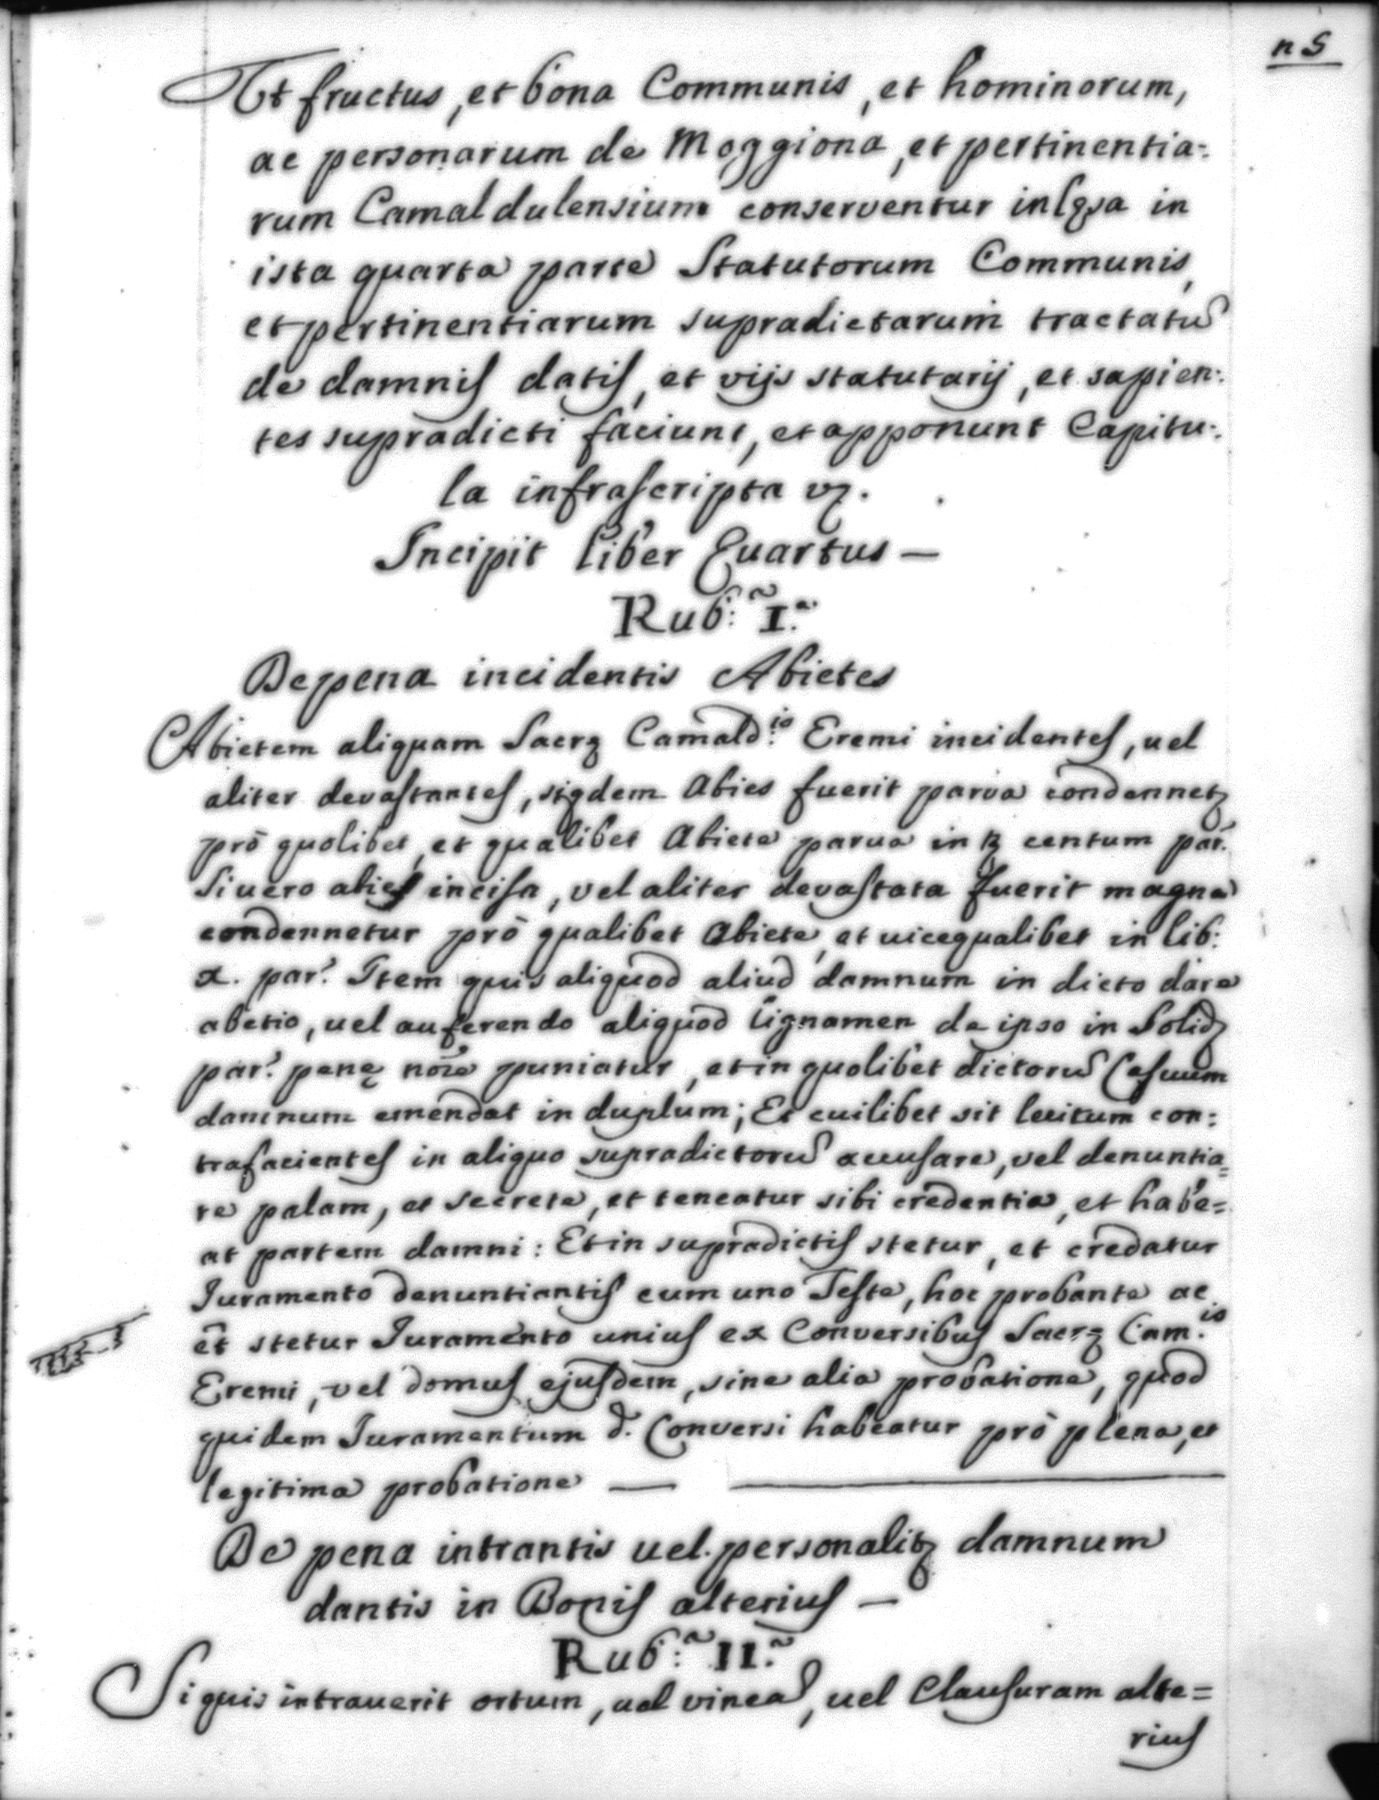 n 5
Ut fructus, et bona Communis, et hominorum,
ac personarum de Moggiona, et pertinentia-
rum Camaldulensium conserventur in
ista quarta parte Statutorum Communis,
et pertinentiarum supradictarum tractatũ
de damnis datis, et vijs statutarij, et sapien-
tes supradicti faciunt, et apponunt Capitu-
la infrascripta vz.
Incipit liber Quartus —
Rub:ᵃ I.ᵃ
De pena incidentis Abietes
Abietem aliquam Sacrę Camald:ⁱˢ Eremi incidentes, vel
aliter devastantes, siqdem Abies fuerit parva condennetz
prò quolibet, et qualibet Abiete parva in centum par:
Si vero abies incisa, vel aliter devastata fuerit magna
condennetur prò qualibet Abiete, et vice qualibet in lib:
x. par: Item quis aliquod aliud damnum in dicto dare
abetio, vel auferendo aliquod lignamen de ipso in Solidz
par: penę nõie puniatur, et in quolibet dictorũ Casuum
damnum emendat in duplum; Et cuilibet sit licitum con-
trafacientes in aliquo supradictorũ accusare, vel denuntia=
re palam, et secrete, et teneatur sibi credentia, et habe=
at partem damni: Et in supradictis stetur, et credatur
Juramento denuntiantis cum uno Teste, hoc probante ac
et̃ stetur Juramento unius ex Conversibus Sacrę Cam:ⁱˢ
Eremi, vel domus ejusdem, sine alia probatione, quod
quidem Juramentum d. Conversi habeatur prò plena, et
legitima probatione —
De pena intrantis vel personalitz damnum
dantis in Bonis alterius —
Rub:ᵃ II.ᵃ
Si quis intraverit ortum, vel vineã, vel Clausuram alte=
rius